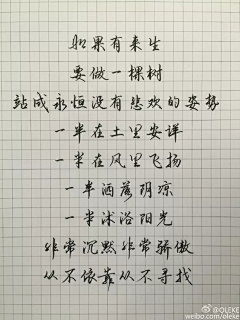 如果有来生
要做一棵树
站成永恒没有悲欢的姿势
一半在土里安详
一半在风里飞扬
一半洒落阴凉
一半沐浴阳光
非常沉默非常骄傲
从不依靠从不寻找
@OLEKE
weibo.com/oleke